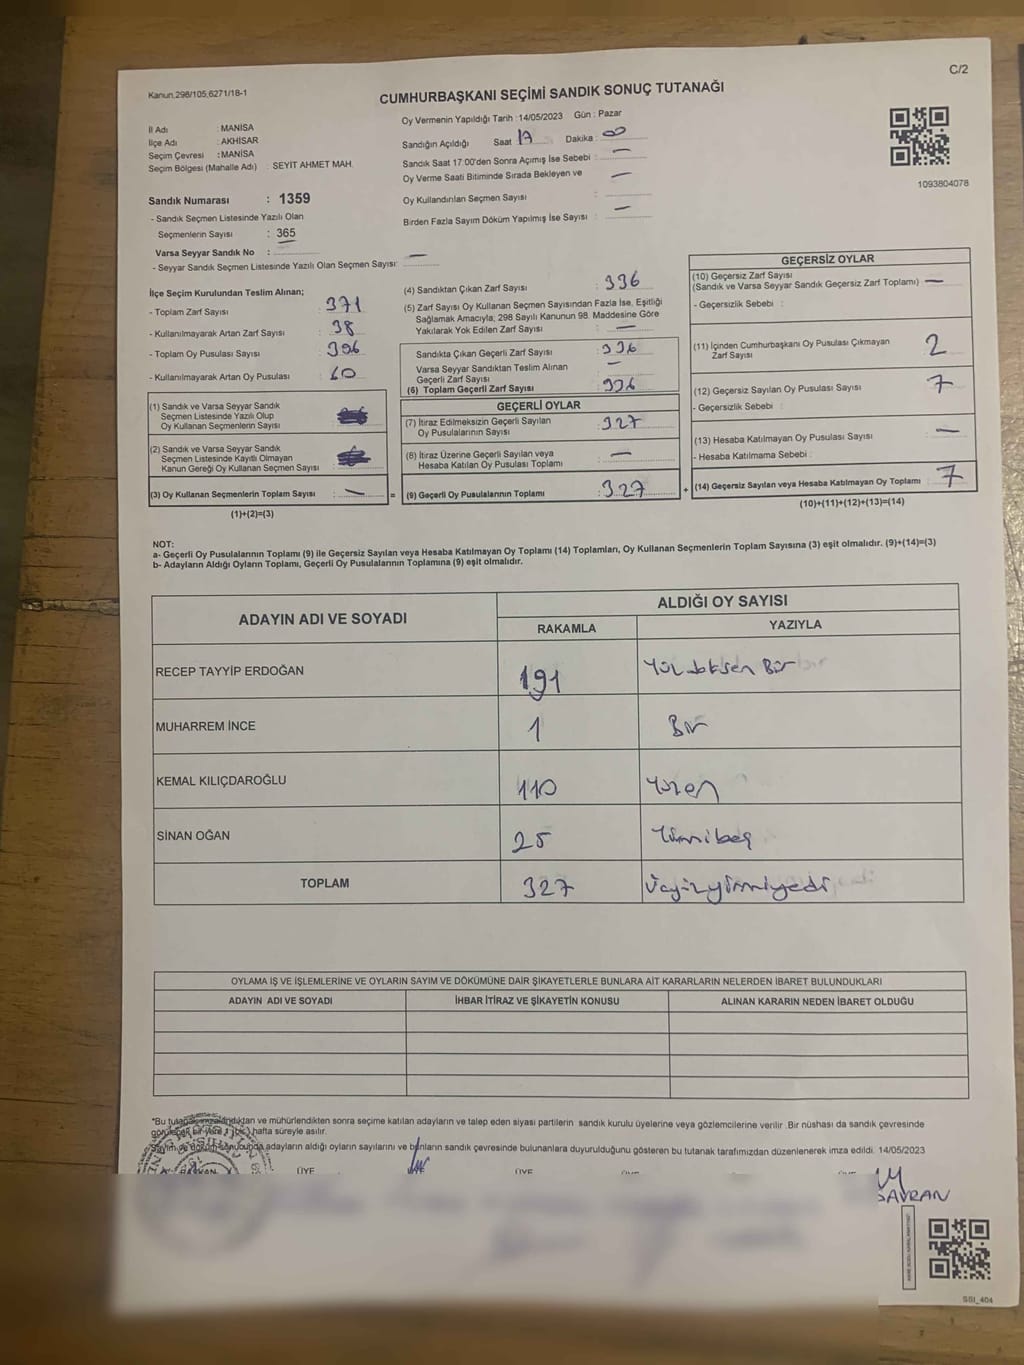 C/2
Kanun.298/105;6271/18-1
CUMHURBAŞKANI SEÇİMİ SANDIK SONUÇ TUTANAĞI
İl Adı : MANİSA
İlçe Adı : AKHİSAR
Seçim Çevresi : MANİSA
Seçim Bölgesi (Mahalle Adı) : SEYİT AHMET MAH.
Oy Vermenin Yapıldığı Tarih :14/05/2023 Gün : Pazar
Sandığın Açıldığı Saat 17 Dakika : 00
Sandık Saat 17:00'den Sonra Açımış İse Sebebi : —
Oy Verme Saati Bitiminde Sırada Bekleyen ve —
Oy Kullandırılan Seçmen Sayısı :
Birden Fazla Sayım Döküm Yapılmış İse Sayısı : —
1093804078
Sandık Numarası : 1359
- Sandık Seçmen Listesinde Yazılı Olan
Seçmenlerin Sayısı : 365
Varsa Seyyar Sandık No :
- Seyyar Sandık Seçmen Listesinde Yazılı Olan Seçmen Sayısı: —
İlçe Seçim Kurulundan Teslim Alınan;
- Toplam Zarf Sayısı : 371
- Kullanılmayarak Artan Zarf Sayısı : 38
- Toplam Oy Pusulası Sayısı : 396
- Kullanılmayarak Artan Oy Pusulası : 60
(1) Sandık ve Varsa Seyyar Sandık
Seçmen Listesinde Yazılı Olup
Oy Kullanan Seçmenlerin Sayısı :
(2) Sandık ve Varsa Seyyar Sandık
Seçmen Listesinde Kayıtlı Olmayan
Kanun Gereği Oy Kullanan Seçmen Sayısı :
(3) Oy Kullanan Seçmenlerin Toplam Sayısı : — =
(1)+(2)=(3)
(4) Sandıktan Çıkan Zarf Sayısı : 336
(5) Zarf Sayısı Oy Kullanan Seçmen Sayısından Fazla İse, Eşitliği
Sağlamak Amacıyla; 298 Sayılı Kanunun 98. Maddesine Göre
Yakılarak Yok Edilen Zarf Sayısı : —
Sandıkta Çıkan Geçerli Zarf Sayısı : 336
Varsa Seyyar Sandıktan Teslim Alınan
Geçerli Zarf Sayısı : —
(6) Toplam Geçerli Zarf Sayısı : 336
GEÇERLİ OYLAR
(7) İtiraz Edilmeksizin Geçerli Sayılan
Oy Pusulalarının Sayısı : 327
(8) İtiraz Üzerine Geçerli Sayılan veya
Hesaba Katılan Oy Pusulası Toplamı : —
(9) Geçerli Oy Pusulalarının Toplamı : 327 +
GEÇERSİZ OYLAR
(10) Geçersiz Zarf Sayısı
(Sandık ve Varsa Seyyar Sandık Geçersiz Zarf Toplamı) : —
- Geçersizlik Sebebi :
(11) İçinden Cumhurbaşkanı Oy Pusulası Çıkmayan
Zarf Sayısı : 2
(12) Geçersiz Sayılan Oy Pusulası Sayısı : 7
- Geçersizlik Sebebi :
(13) Hesaba Katılmayan Oy Pusulası Sayısı : —
- Hesaba Katılmama Sebebi :
(14) Geçersiz Sayılan veya Hesaba Katılmayan Oy Toplamı : 7
(10)+(11)+(12)+(13)=(14)
NOT:
a- Geçerli Oy Pusulalarının Toplamı (9) ile Geçersiz Sayılan veya Hesaba Katılmayan Oy Toplamı (14) Toplamları, Oy Kullanan Seçmenlerin Toplam Sayısına (3) eşit olmalıdır. (9)+(14)=(3)
b- Adayların Aldığı Oyların Toplamı, Geçerli Oy Pusulalarının Toplamına (9) eşit olmalıdır.
ADAYIN ADI VE SOYADI ALDIĞI OY SAYISI
RAKAMLA YAZIYLA
RECEP TAYYİP ERDOĞAN 191 Yüz Bir
MUHARREM İNCE 1 Bir
KEMAL KILIÇDAROĞLU 110 Yüzon
SİNAN OĞAN 25 Yirmibeş
TOPLAM 327 Üçyüzyirmiyedi
OYLAMA İŞ VE İŞLEMLERİNE VE OYLARIN SAYIM VE DÖKÜMÜNE DAİR ŞİKAYETLERLE BUNLARA AİT KARARLARIN NELERDEN İBARET BULUNDUKLARI
ADAYIN ADI VE SOYADI İHBAR İTİRAZ VE ŞİKAYETİN KONUSU ALINAN KARARIN NEDEN İBARET OLDUĞU
*Bu ve mühürlendikten sonra seçime katılan adayların ve talep eden siyasi partilerin sandık kurulu üyelerine veya gözlemcilerine verilir .Bir nüshası da sandık çevresinde
hafta süreyle asılır.
adayların aldığı oyların sayılarını ve bunların sandık çevresinde bulunanlara duyurulduğunu gösteren bu tutanak tarafımızdan düzenlenerek imza edildi. 14/05/2023
ÜYE ÜYE
SAVRAN
SSI_404